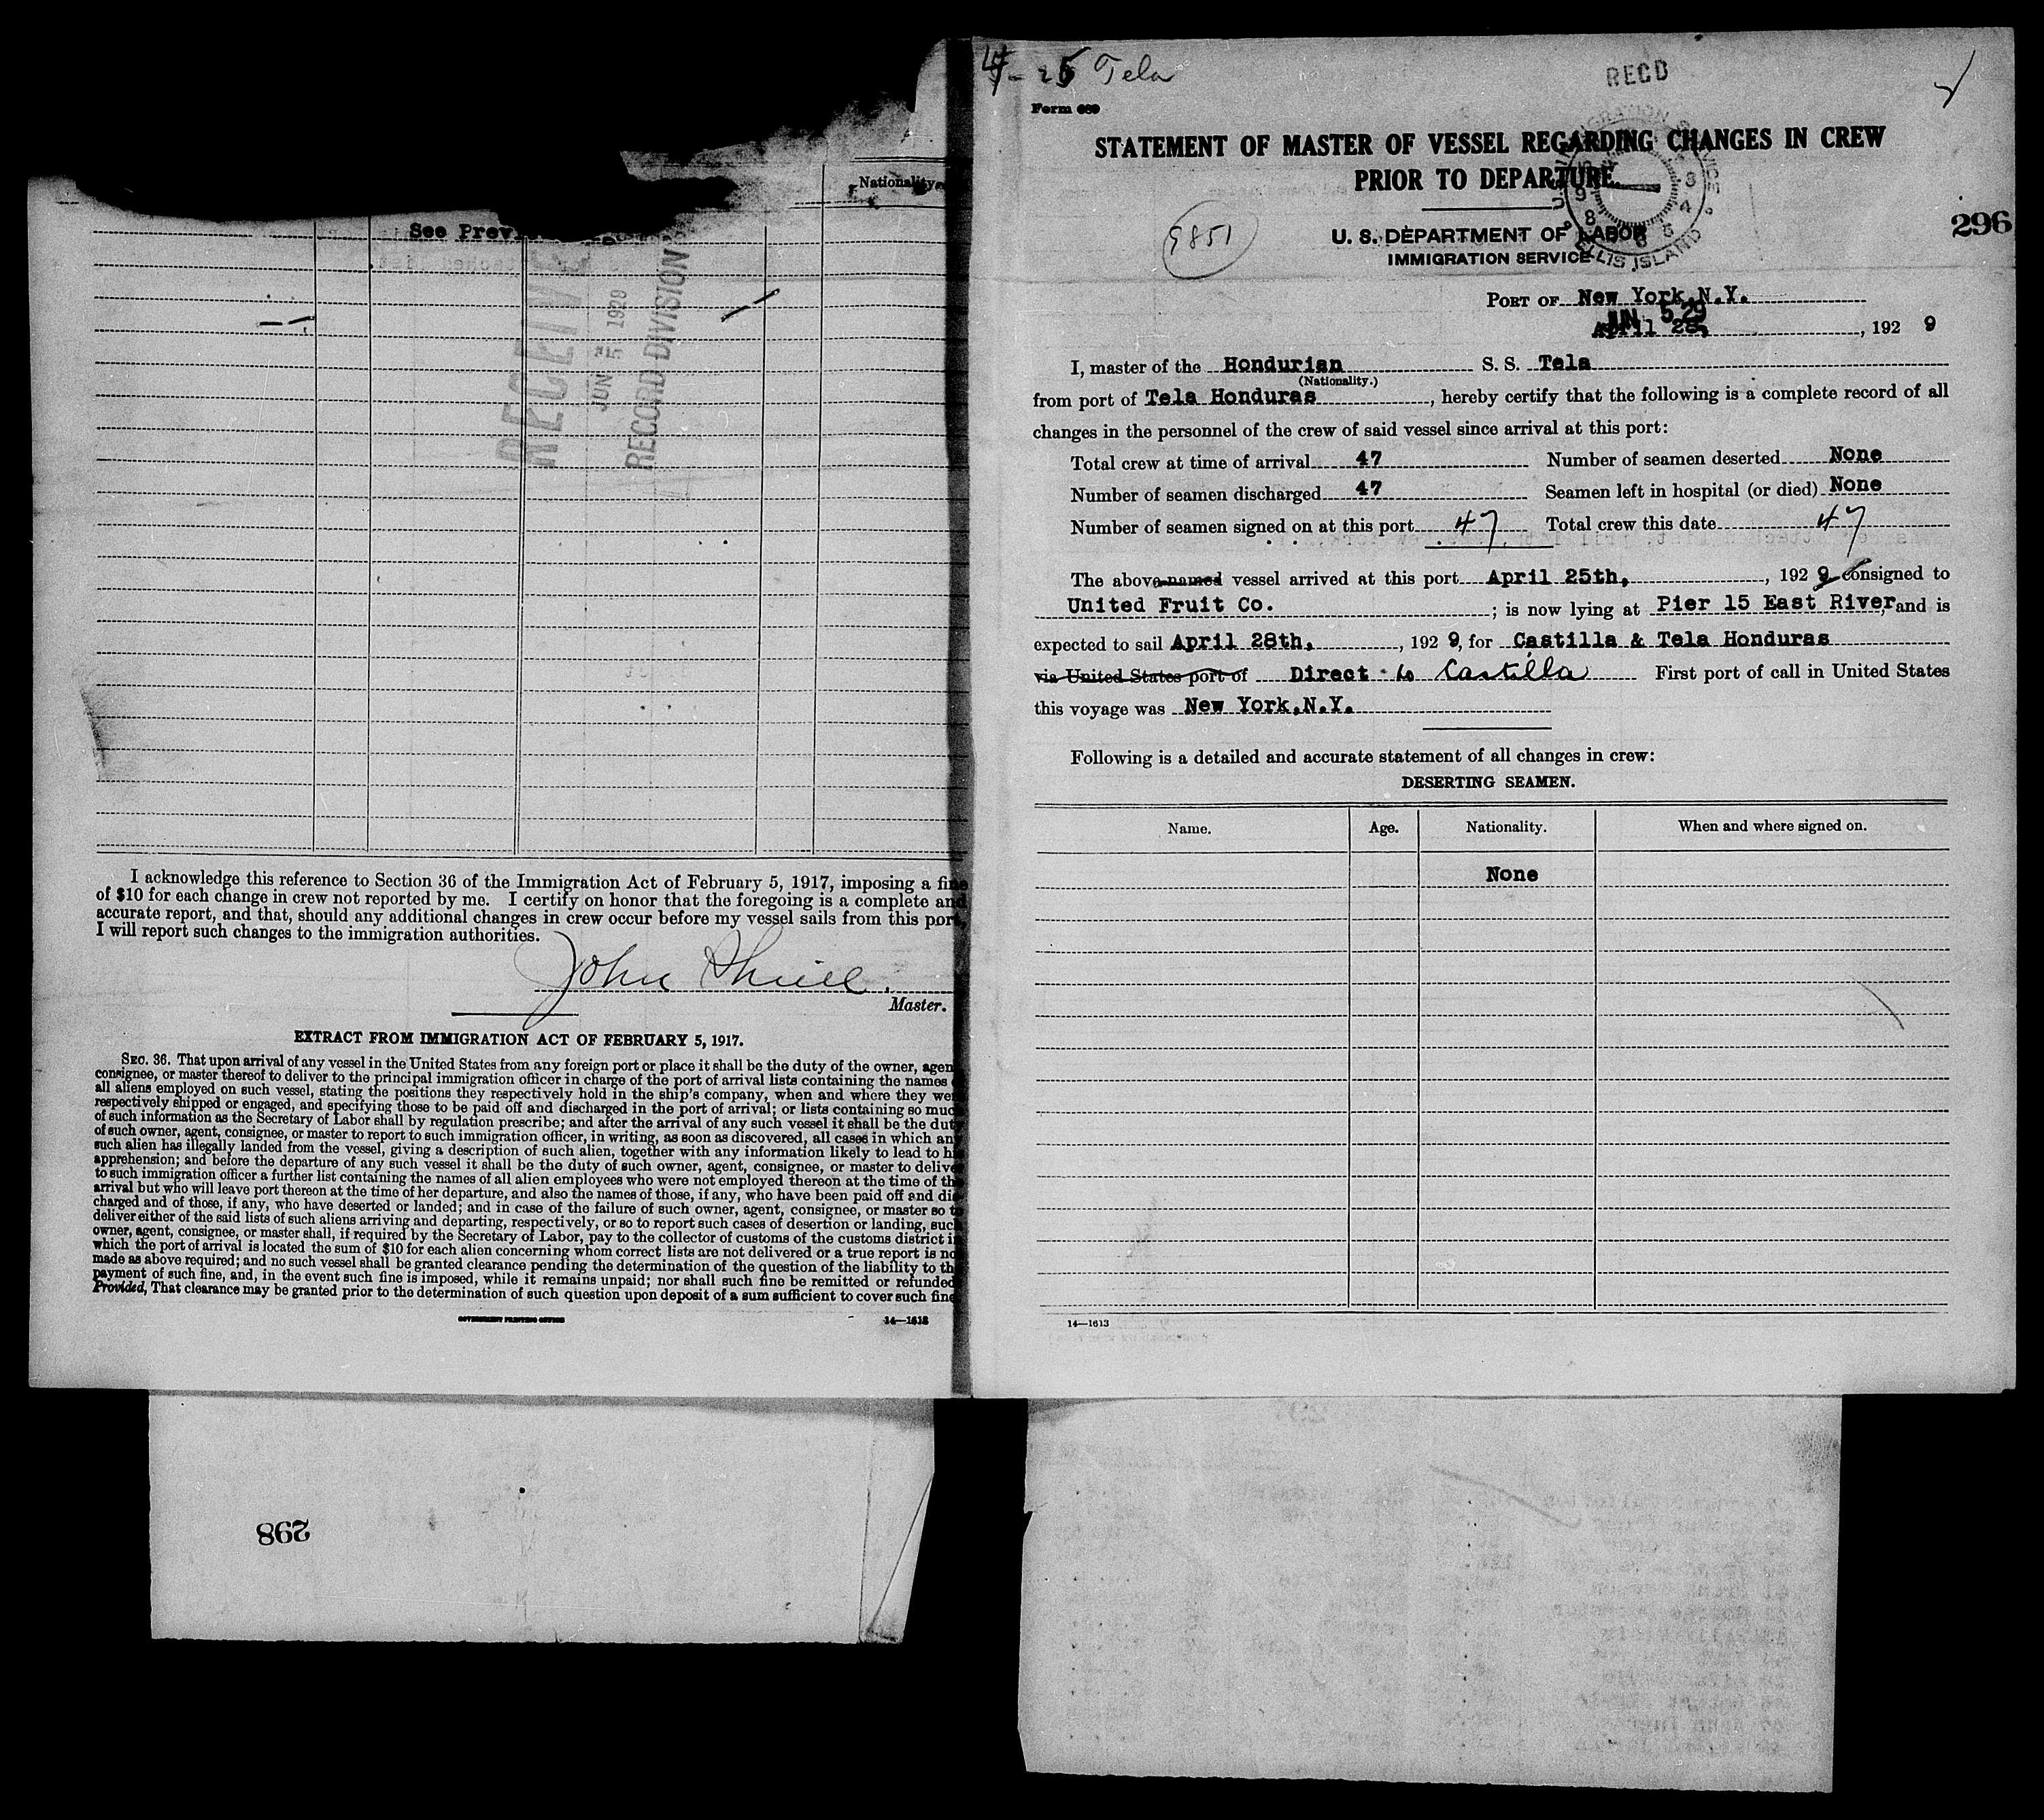 Nationality.
See Prev
RECEIVED
JUN 5 1929
RECORD DIVISION
I acknowledge this reference to Section 36 of the Immigration Act of February 5, 1917, imposing a fine
of $10 for each change in crew not reported by me. I certify on honor that the foregoing is a complete and
accurate report, and that, should any additional changes in crew occur before my vessel sails from this port,
I will report such changes to the immigration authorities.
John
Master.
EXTRACT FROM IMMIGRATION ACT OF FEBRUARY 5, 1917.
SEC. 36. That upon arrival of any vessel in the United States from any foreign port or place it shall be the duty of the owner, agen
consignee, or master thereof to deliver to the principal immigration officer in charge of the port of arrival lists containing the names
all aliens employed on such vessel, stating the positions they respectively hold in the ship's company, when and where they wer
respectively shipped or engaged, and specifying those to be paid off and discharged in the port of arrival; or lists containing so much
of such information as the Secretary of Labor shall by regulation prescribe; and after the arrival of any such vessel it shall be the duty
of such owner, agent, consignee, or master to report to such immigration officer, in writing, as soon as discovered, all cases in which any
such alien has illegally landed from the vessel, giving a description of such alien, together with any information likely to lead to hi
apprehension; and before the departure of any such vessel it shall be the duty of such owner, agent, consignee, or master to delive
to such immigration officer a further list containing the names of all alien employees who were not employed thereon at the time of th
arrival but who will leave port thereon at the time of her departure, and also the names of those, if any, who have been paid off and di
charged and of those, if any, who have deserted or landed; and in case of the failure of such owner, agent, consignee, or master so t
deliver either of the said lists of such aliens arriving and departing, respectively, or so to report such cases of desertion or landing, suc
owner, agent, consignee, or master shall, if required by the Secretary of Labor, pay to the collector of customs of the customs district i
which the port of arrival is located the sum of $10 for each alien concerning whom correct lists are not delivered or a true report is no
made as above required; and no such vessel shall be granted clearance pending the determination of the question of the liability to th
payment of such fine, and, in the event such fine is imposed, while it remains unpaid; nor shall such fine be remitted or refunded
Provided, That clearance may be granted prior to the determination of such question upon deposit of a sum sufficient to cover such fine
GOVERNMENT PRINTING OFFICE 14—1613
298
Tela
RECD
Form 689
STATEMENT OF MASTER OF VESSEL REGARDING CHANGES IN CREW
PRIOR TO DEPARTURE
9851
U. S. DEPARTMENT OF LABOR
IMMIGRATION SERVICE
ELLIS ISLAND
296
PORT OF New York, N.Y.
JUN 5 29
April 28, 192 9
I, master of the Hondurian S. S. Tela
(Nationality.)
from port of Tela Honduras, hereby certify that the following is a complete record of all
changes in the personnel of the crew of said vessel since arrival at this port:
Total crew at time of arrival 47 Number of seamen deserted None
Number of seamen discharged 47 Seamen left in hospital (or died) None
Number of seamen signed on at this port 47 Total crew this date 47
The above-named vessel arrived at this port April 25th, , 192 9 consigned to
United Fruit Co. ; is now lying at Pier 15 East River, and is
expected to sail April 28th, , 192 9, for Castilla & Tela Honduras
via United States port of Direct to Castilla First port of call in United States
this voyage was New York, N.Y.
Following is a detailed and accurate statement of all changes in crew:
DESERTING SEAMEN.
Name. Age. Nationality. When and where signed on.
None
14—1613